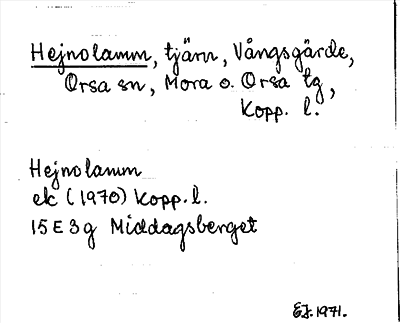 Hejnolamm, tjärn, Vångsgärde,
Orsa sn, Mora o. Orsa tg,
Kopp. l.
Hejnolamm
ek (1970) Kopp. l.
15 E 3 g Middagsberget
EJ. 1971.